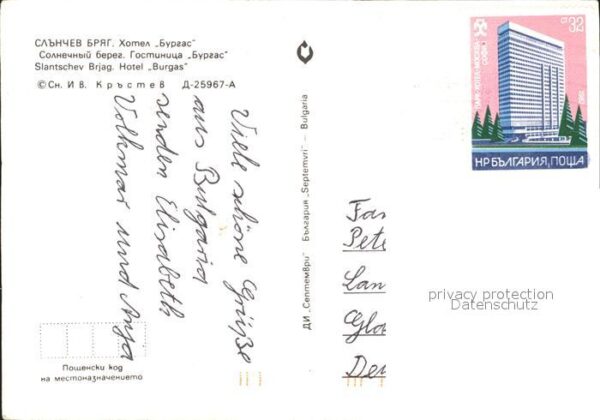 СЛЪНЧЕВ БРЯГ. Хотел „Бургас"
Солнечный берег. Гостиница „Бургас"
Slantschev Brjag. Hotel „Burgas"
© Сн. И В. Кръстев Д-25967-А
Viele schöne Grüße
aus Bulgaria
senden Elisabeth
Volkmar und Anja
Пощенски код
на местоназначението
ДИ „Септември" България „Septemvri" – Bulgaria
ст 32
ПАРК-ХОТЕЛ „МОСКВА"
СОФИЯ
1982
НР БЪЛГАРИЯ, ПОЩА
Fa
Pete
Lan
Gla
De
privacy protection
Datenschutz